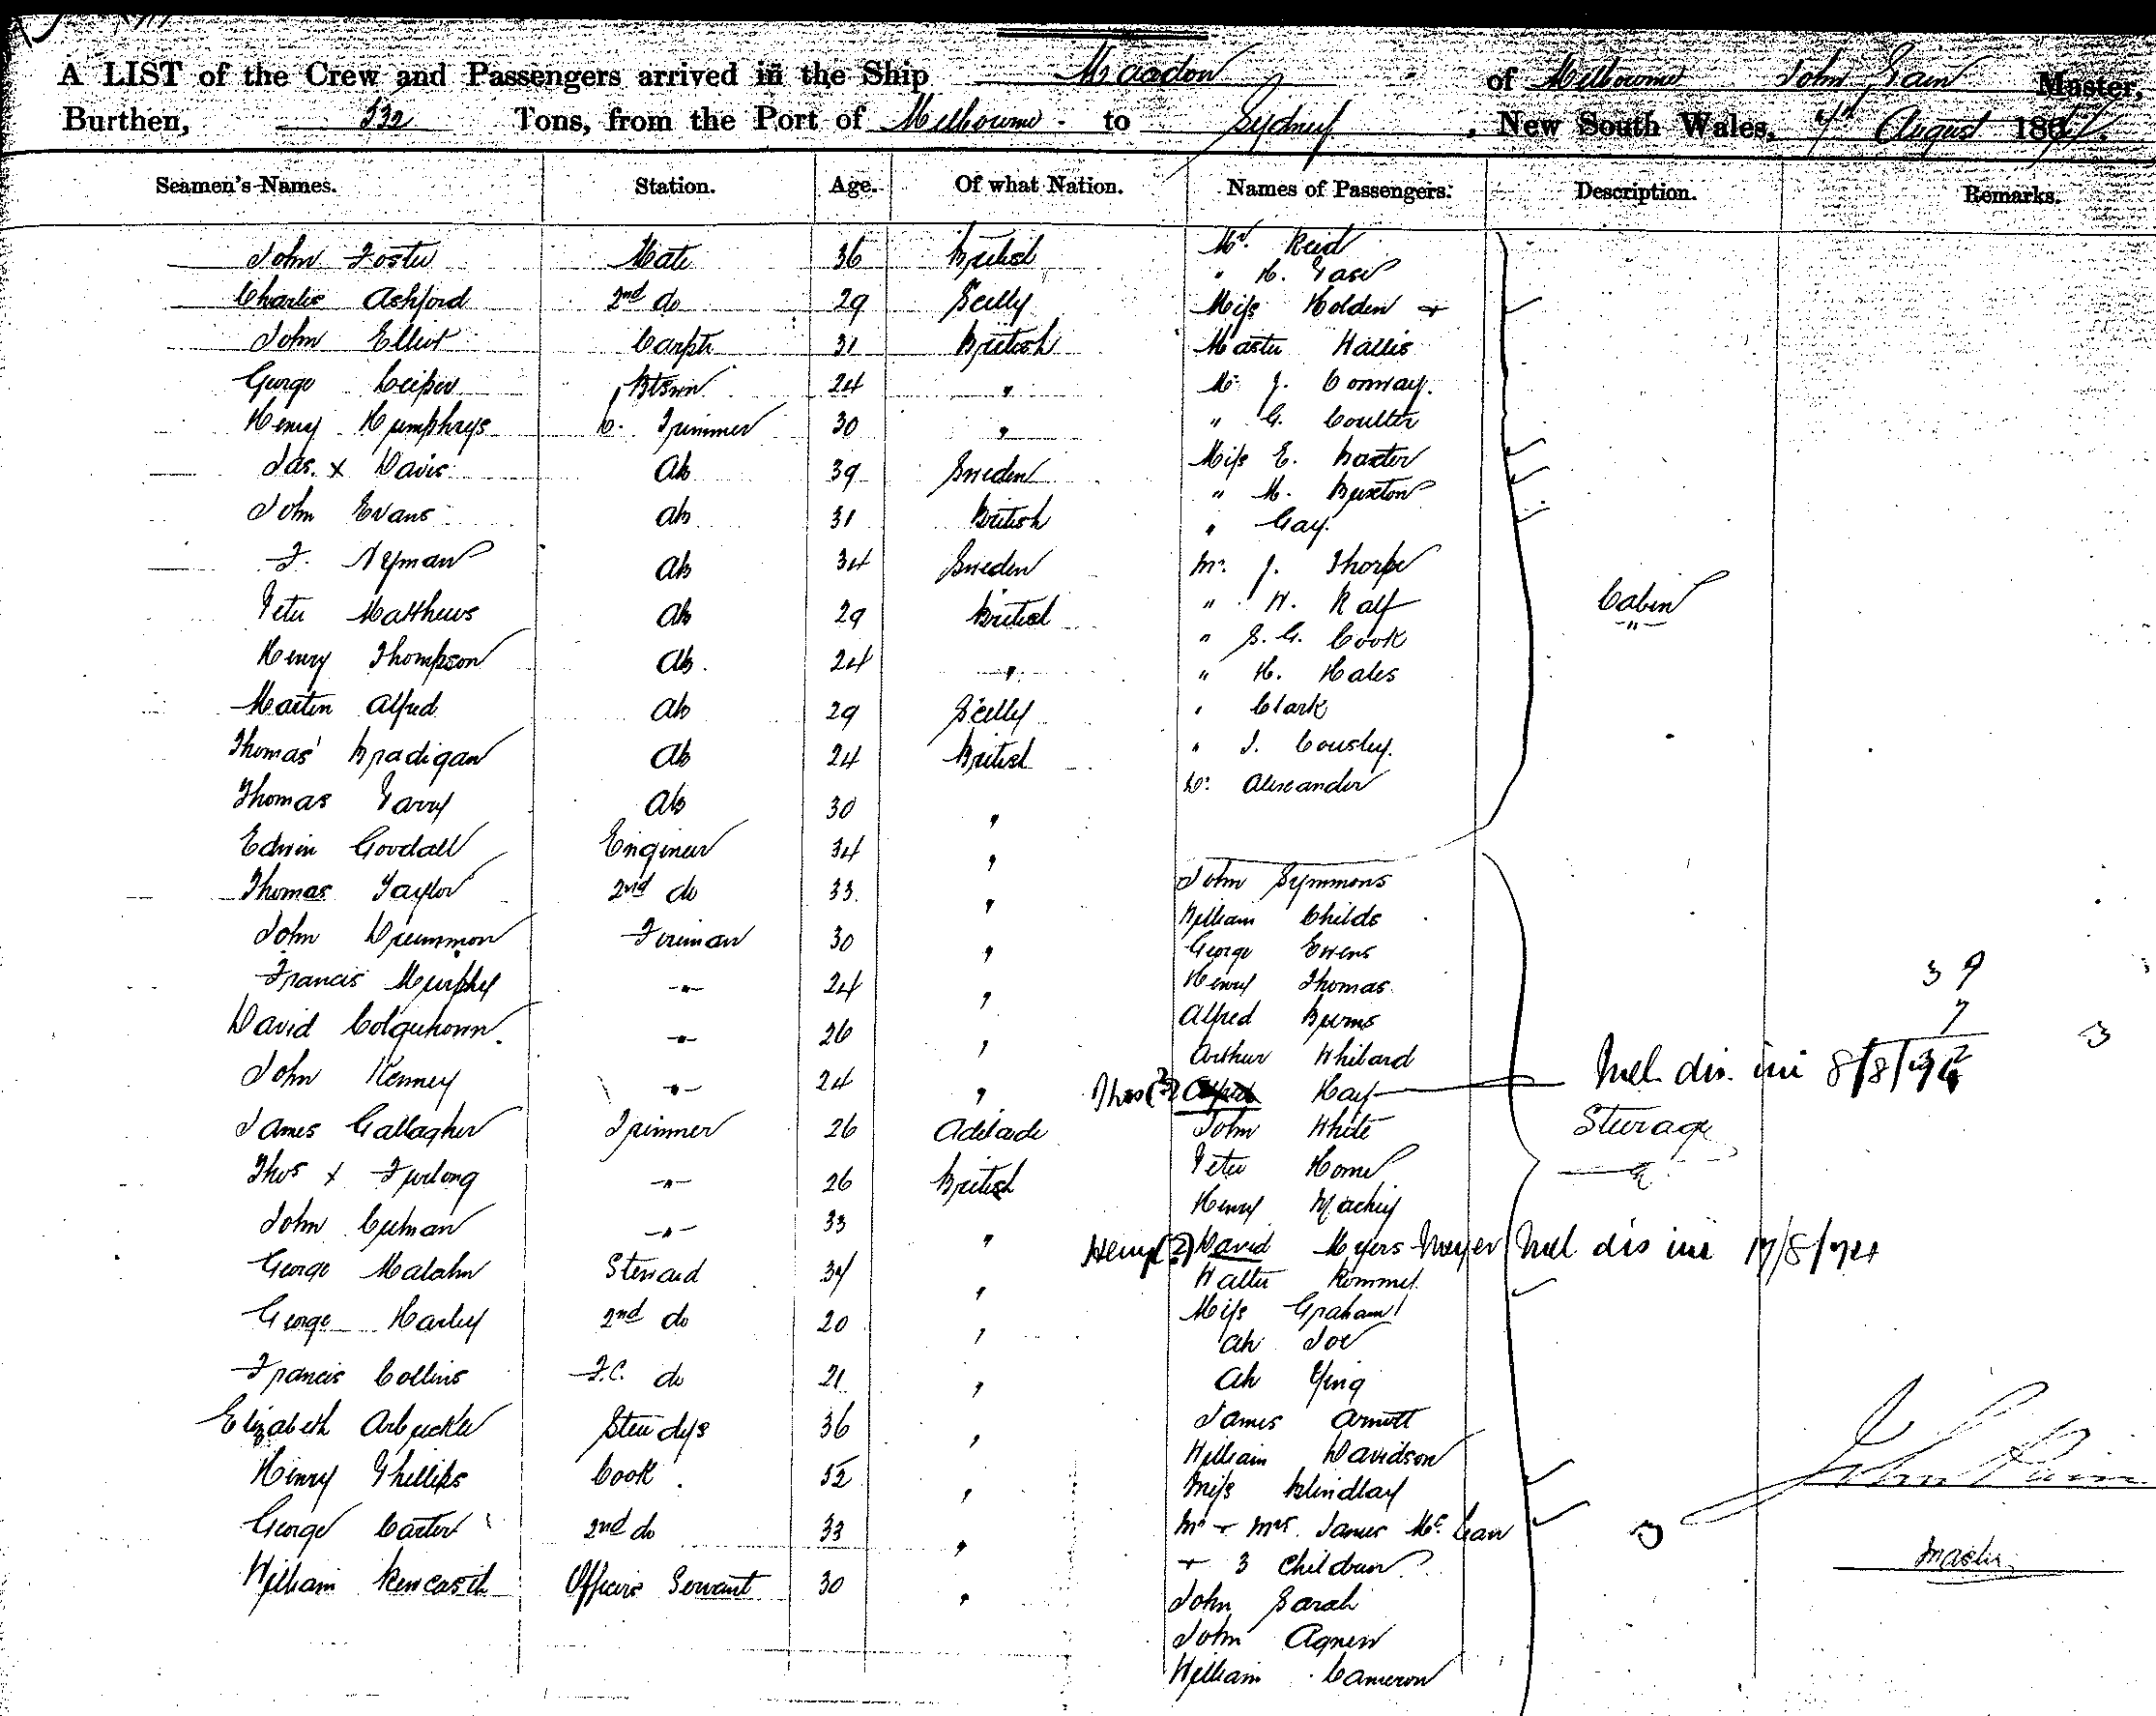 A LIST of the Crew and Passengers arrived in the Ship Macedon of Melbourne John Master,
Burthen, 532 Tons, from the Port of Melbourne to Sydney, New South Wales, 4th August 187
Seamen's Names. Station. Age. Of what Nation. Names of Passengers. Description. Remarks.
John Foster Mate 36 British
Charles Ashford 2nd do 29 Scilly
John Elliot Carptr 31 British
George Leiper Btswn 24 "
Henry Humphrys C. Trimmer 30 "
Jas. x Davis Ab 39 Sweden
John Evans ab 31 British
F. Nyman Ab 34 Sweden
Peter Matthews Ab 29 British
Henry Thompson Ab. 24 "
Martin Alfred Ab 29 Scilly
Thomas Bradigan Ab 24 British
Thomas Parry Ab 30 "
Edwin Goodall Engineer 34 "
Thomas Taylor 2nd do 33 "
John Drummon Fireman 30 "
Francis Murphy -"- 24 "
David Colquhoun -"- 26 "
John Kenney -"- 24 "
James Gallagher Trimmer 26 Adelaide
Thos x Furlong -"- 26 British
John Culman -"- 33 "
George Malcolm Steward 34 "
George Harley 2nd do 20 "
Francis Collins F.C. do 21 "
Elizabeth Arbuckle Stewdss 36 "
Henry Phillips Cook 52 "
George Carter 2nd do 33 "
William Officers Servant 30 "
Mr. Reid
" H.
Miss Holden +
Master Wallis
Mr J. Conway
" G. Coulter
Miss E. Baxter
" M. Buxton
" Gay
Mr. J. Thorpe
" W. Ralf
" S. G. Cook
" H. Hales
" Clark
" J. Cousley
Dr. Alexander
Cabin
"
John Symmons
William Childs
George Ewens
Henry Thomas
Alfred Burns
Arthur Whitard
Thos (?) Alfred Hay Mel. dis. ini 8/8/74
John White
Peter Home
Henry Mackey
Henry (?) David Myers Meyer Mel dis ini 17/8/74
Walter Rommel
Miss Graham
Ah Joe
Ah Ying
James Arnott
William Davidson
Miss Blindlay
Mr + Mrs. James McCaw
+ 3 Children
John Sarah
John Agnew
William Cameron
Steerage
39
7
32
3
3
John
Master